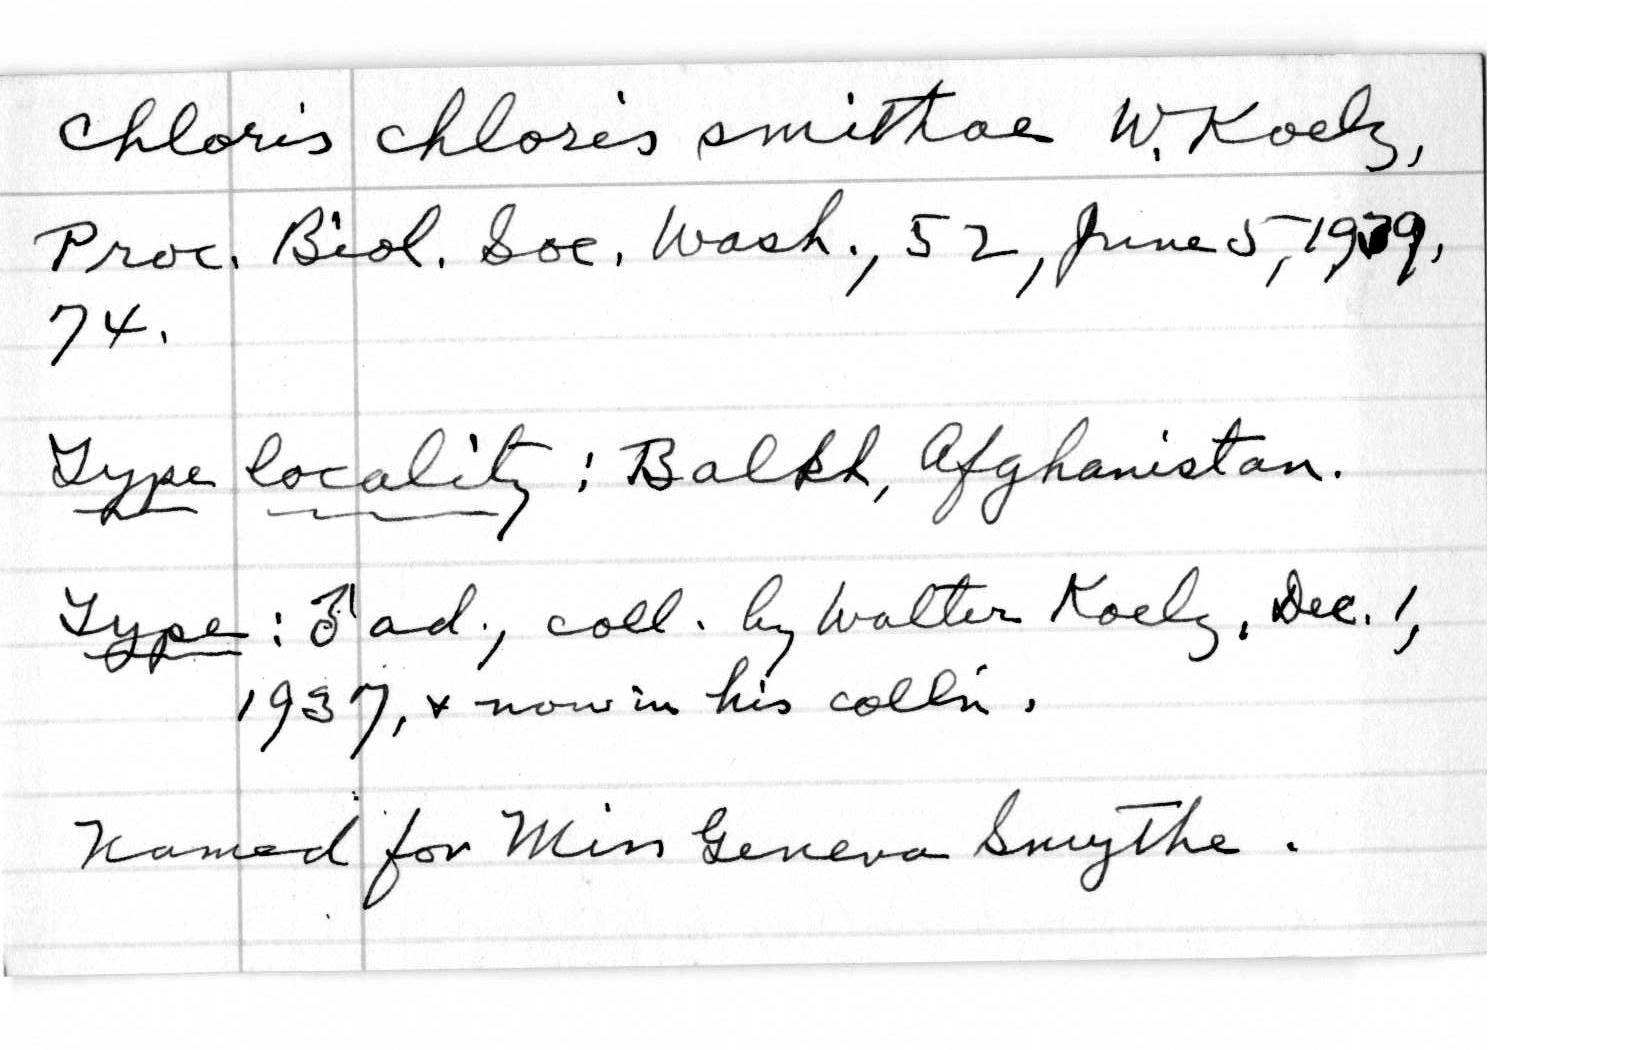 Chloris chloris smithae W. Koelz,
Proc. Biol. Soc. Wash., 52, June 5, 1939,
74.
Type locality: Balkh, Afghanistan.
Type: ♂ ad., coll. by Walter Koelz, Dec. 1,
1937, & now in his coll'n.
Named for Miss Geneva Smythe.